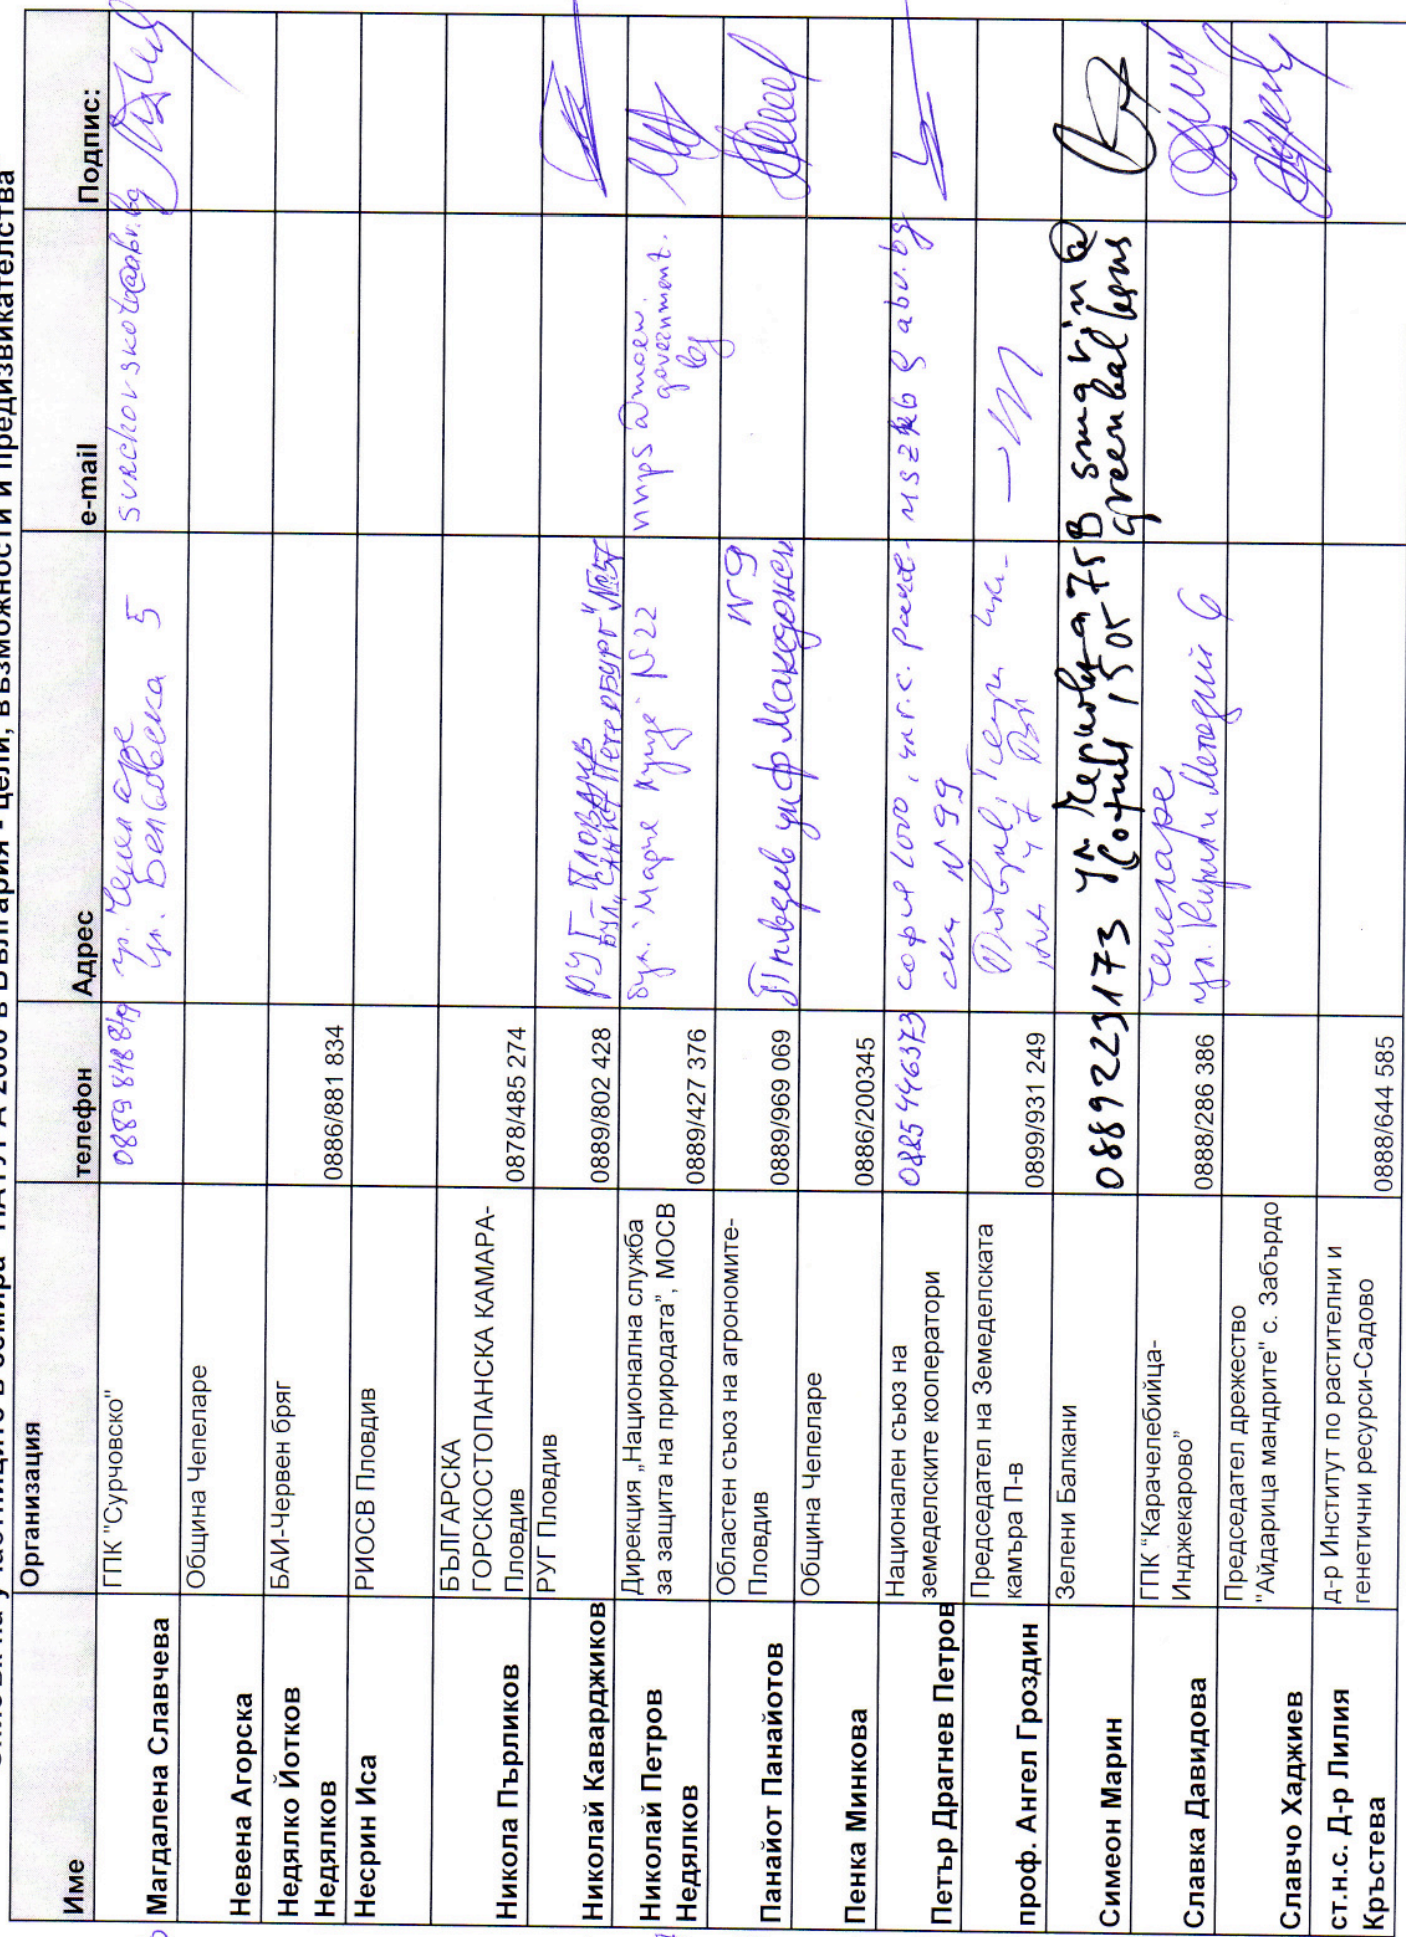 участниците в семинара "НАТУРА 2000 в България - цели, възможности и предизвикателства"
Име Организация телефон Адрес e-mail Подпис:
Магдалена Славчева ГПК "Сурчовско" 0889 848 849 гр. Чепеларе
ул. Беловска 5
Невена Агорска Община Чепеларе
Недялко Йотков БАИ-Червен бряг 0886/881 834
Недялков
Несрин Иса РИОСВ Пловдив
БЪЛГАРСКА
ГОРСКОСТОПАНСКА КАМАРА-
Никола Пърликов Пловдив 0878/485 274
Николай Каварджиков РУГ Пловдив 0889/802 428 РУГ - Пловдив
бул. "Санкт Петербург" №57
Николай Петров Дирекция „Национална служба
Недялков за защита на природата", МОСВ 0889/427 376 бул. "Мария Луиза" №22 nnps@moew.
government.
bg
Панайот Панайотов Областен съюз на агрономите-
Пловдив 0889/969 069 Пловдив ул. Македонски №9
Пенка Минкова Община Чепеларе 0886/200345
Петър Драгнев Петров Национален съюз на
земеделските кооператори 0885446373 София 1000, ул. Г.С. Раков-
ски №99 abv.bg
проф. Ангел Гроздин Председател на Земеделската
камъра П-в 0899/931 249 Пловдив,
Симеон Марин Зелени Балкани 0889223173 ул. 75В
София 1505 smarin@
greenbalkans
Славка Давидова ГПК "Карачелебийца-
Инджекарово" 0888/286 386 Чепеларе
ул. Кирил и Методий 6
Славчо Хаджиев Председател дрежество
"Айдарица мандрите" с. Забърдо
ст.н.с. Д-р Лилия д-р Институт по растителни и
Кръстева генетични ресурси-Садово 0888/644 585